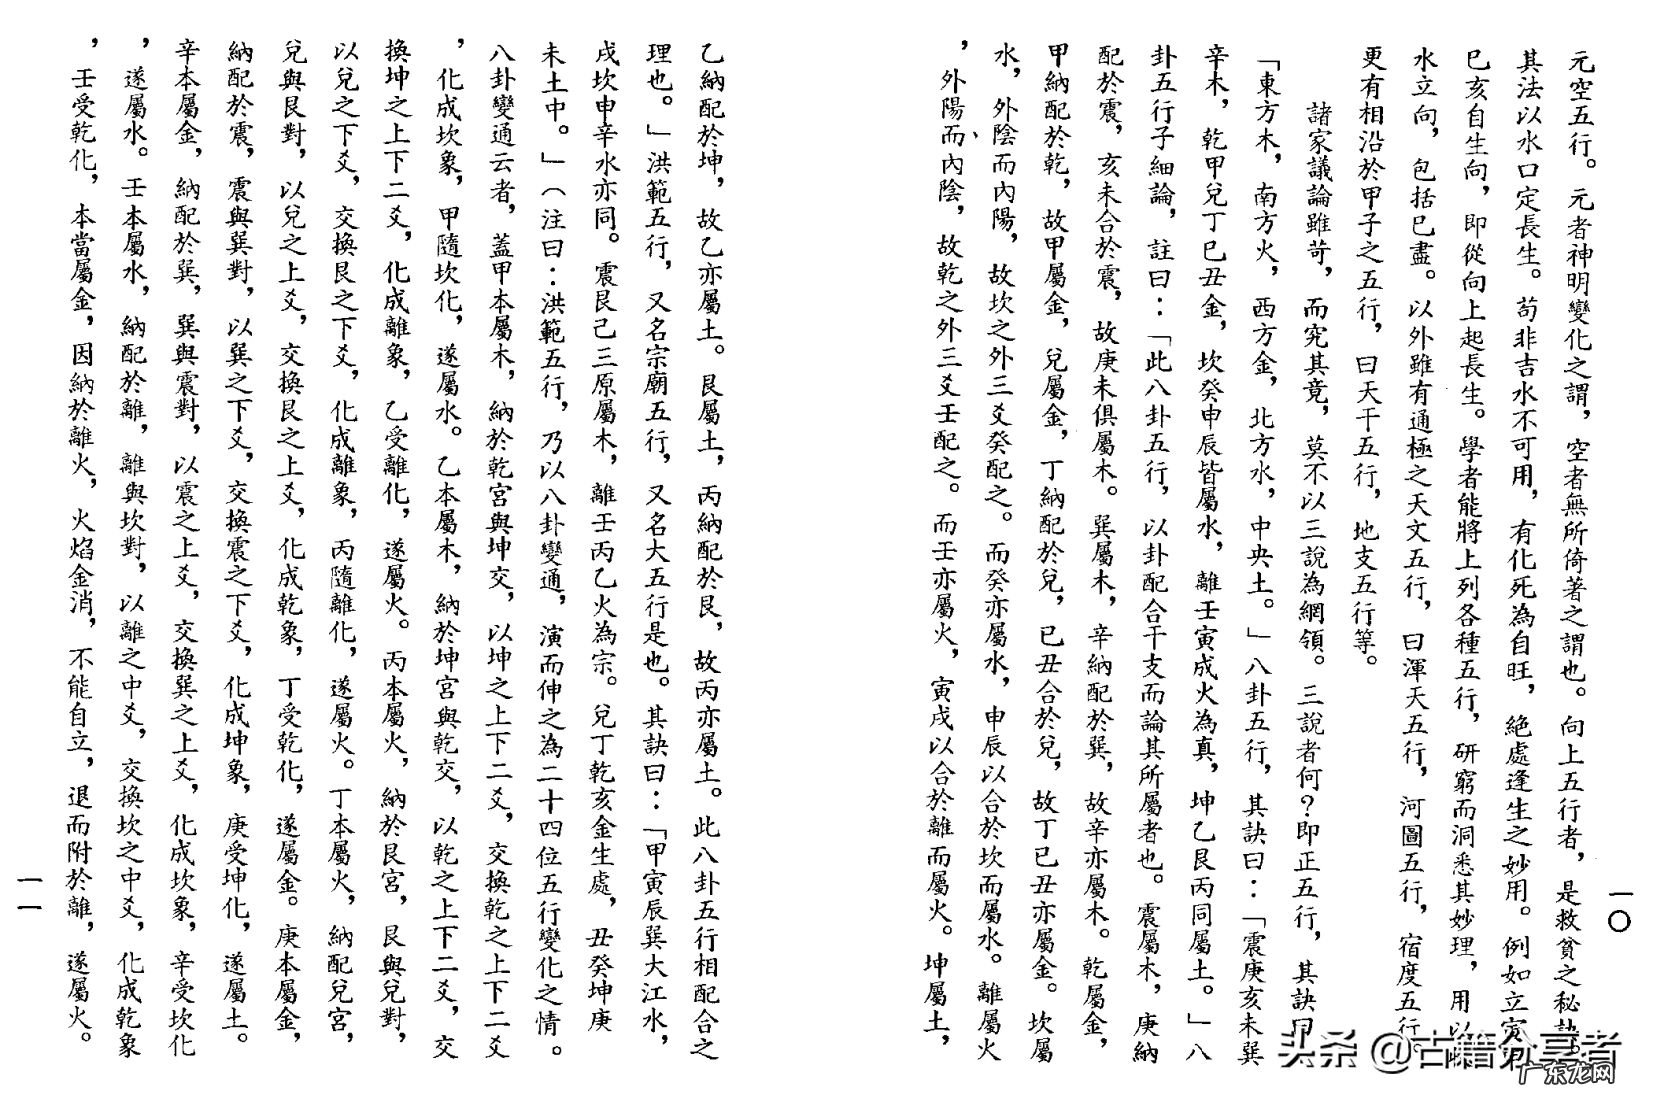 元空五行。元者神明變化之謂，空者無所倚著之謂也。向上五行者，是救貧之秘訣。
其法以水口定長生。苟非吉水不可用，有化死為自旺，絕處逢生之妙用。例如立寅申
巳亥自生向，即從向上起長生。學者能將上列各種五行，研窮而洞悉其妙理，用以
水立向，包括巳盡。以外雖有通極之天文五行，曰渾天五行，河圖五行，宿度五行。
更有相沿於甲子之五行，曰天干五行，地支五行等。
諸家議論雖苛，而究其竟，莫不以三說為網領。三說者何？即正五行，其訣曰
「東方木，南方火，西方金，北方水，中央土。」八卦五行，其訣曰：「震庚亥未巽
辛木，乾甲兌丁巳丑金，坎癸申辰皆屬水，離壬寅戌火為真，坤乙艮丙同屬土。」八
卦五行子細論，註曰：「此八卦五行，以卦配合干支而論其所屬者也。震屬木，庚納
配於震，亥未合於震，故庚未俱屬木。巽屬木，辛納配於巽，故辛亦屬木。乾屬金，
甲納配於乾，故甲屬金，兌屬金，丁納配於兌，巳丑合於兌，故丁巳丑亦屬金。坎屬
水，外陰而內陽，故坎之外三爻癸配之。而癸亦屬水，申辰以合於坎而屬水。離屬火
，外陽而內陰，故乾之外三爻壬配之。而壬亦屬火，寅戌以合於離而屬火。坤屬土，
一〇
乙納配於坤，故乙亦屬土。艮屬土，丙納配於艮，故丙亦屬土。此八卦五行相配合之
理也。」洪範五行，又名宗廟五行，又名大五行是也。其訣曰：「甲寅辰巽大江水，
戌坎申辛水亦同。震艮己三原屬木，離壬丙乙火為宗。兌丁乾亥金生處，丑癸坤庚
未土中。」（注曰：洪範五行，乃以八卦變通，演而伸之為二十四位五行變化之情。
八卦變通云者，蓋甲本屬木，納於乾宮與坤交，以坤之上下二爻，交換乾之上下二爻
，化成坎象，甲隨坎化，遂屬水。乙本屬木，納於坤宮與乾交，以乾之上下二爻，交
換坤之上下二爻，化成離象，乙受離化，遂屬火。丙本屬火，納於艮宮，艮與兌對，
以兌之下爻，交換艮之下爻，化成離象，丙隨離化，遂屬火。丁本屬火，納配兌宮，
兌與艮對，以兌之上爻，交換艮之上爻，化成乾象，丁受乾化，遂屬金。庚本屬金，
納配於震，震與巽對，以巽之下爻，交換震之下爻，化成坤象，庚受坤化，遂屬土。
辛本屬金，納配於巽，巽與震對，以震之上爻，交換巽之上爻，化成坎象，辛受坎化
，遂屬水。壬本屬水，納配於離，離與坎對，以離之中爻，交換坎之中爻，化成乾象
，壬受乾化，本當屬金，因納於離火，火焰金消，不能自立，退而附於離，遂屬火。
一一
头条 @古籍分享者
广东龙网